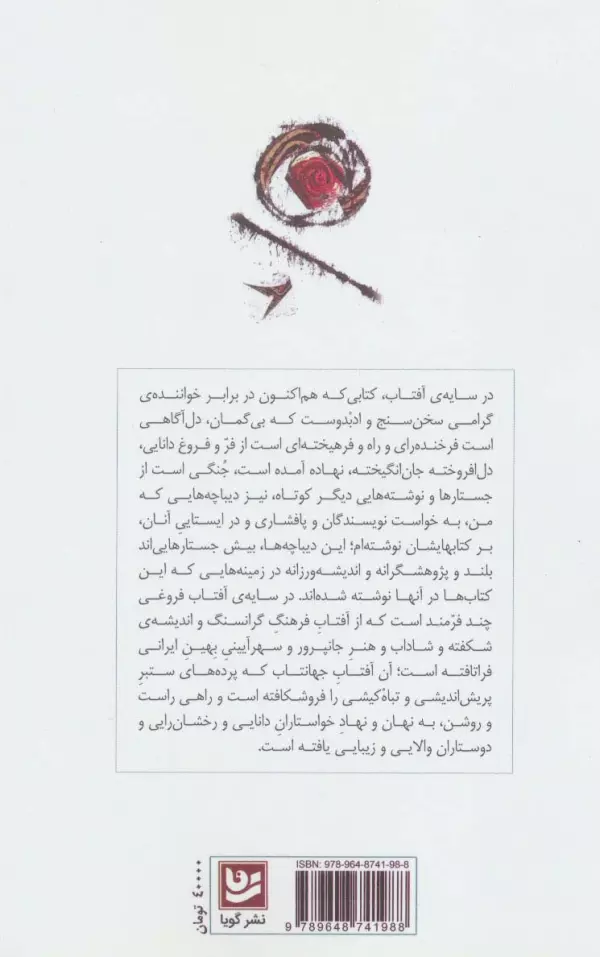 در سایه‌ی آفتاب، کتابی که هم‌اکنون در برابر خواننده‌ی
گرامی سخن‌سنج و ادبْدوست که بی‌گمان، دل‌آگاهی
است فرخنده‌رای و راه و فرهیخته‌ای است از فرّ و فروغ دانایی،
دل‌افروخته جان‌انگیخته، نهاده آمده است، جُنگی است از
جستارها و نوشته‌هایی دیگر کوتاه، نیز دیباچه‌هایی که
من، به خواست نویسندگان و پافشاری و در ایستاییِ آنان،
بر کتابهایشان نوشته‌ام؛ این دیباچه‌ها، بیش جستارهایی‌اند
بلند و پژوهشگرانه و اندیشه‌ورزانه در زمینه‌هایی که این
کتاب‌ها در آنها نوشته شده‌اند. در سایه‌ی آفتاب فروغی
چند فرّمند است که از آفتابِ فرهنگِ گرانسنگ و اندیشه‌ی
شکفته و شاداب و هنرِ جانپرور و سهرآیینیِ بِهینِ ایرانی
فراتافته است؛ آن آفتابِ جهانتاب که پرده‌های ستبرِ
پریش‌اندیشی و تباه‌کیشی را فروشکافته است و راهی راست
و روشن، به نهان و نهادِ خواستارانِ دانایی و رخشان‌رایی و
دوستاران والایی و زیبایی یافته است.
ISBN: 978-964-8741-98-8
9 789648 741988
نشر گویا
۴۰۰۰۰ تومان